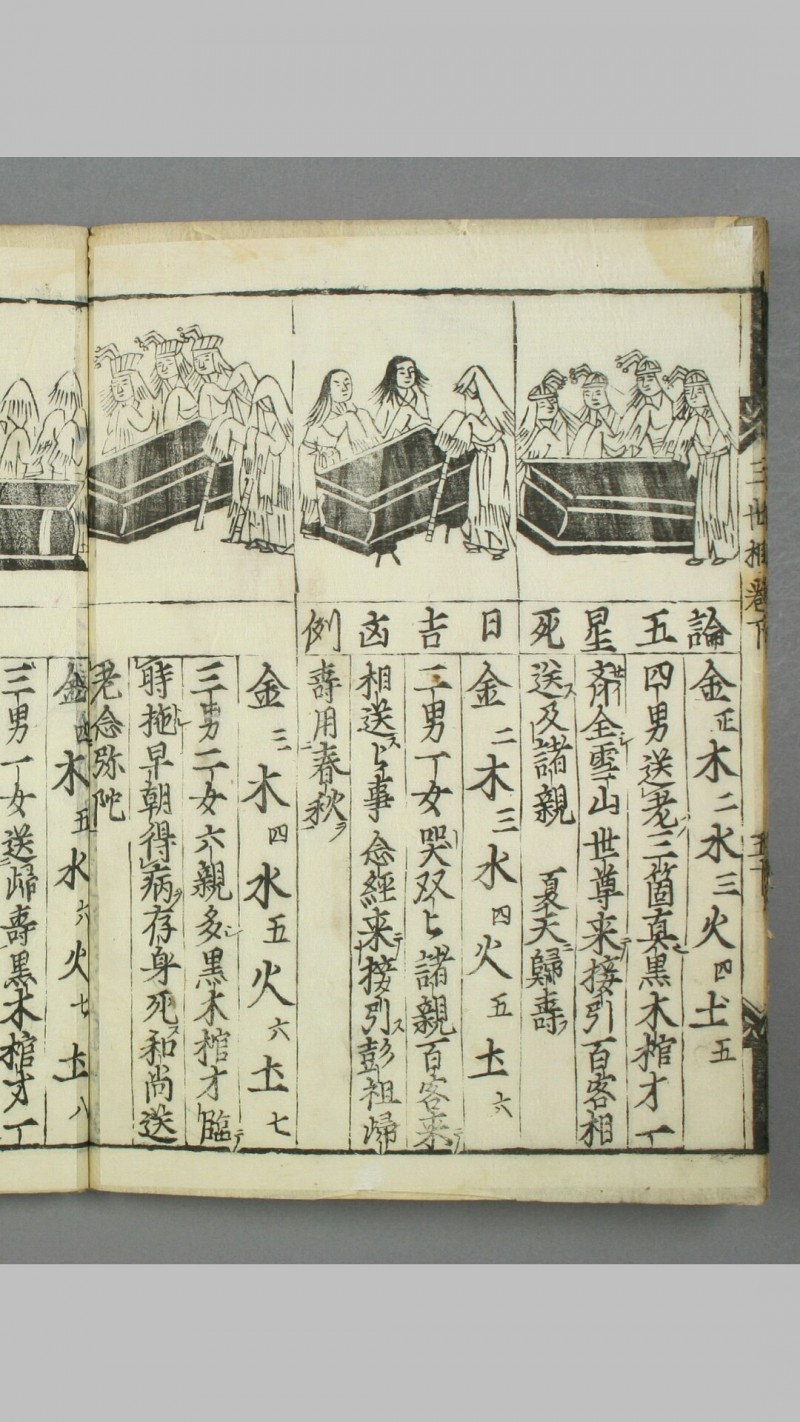 三世相卷下
論五星死日吉凶例
金正木二水三火四土五
四男送老三箇真黒木棺才一
斎全雪山世尊来接引百客相
送及諸親 夏夫歸壽
金二木三水四火五土六
二男丁女哭双〻諸親百客来
相送〻事念経来接引彭祖歸
壽用春秋
金三木四水五火六土七
三男二女六親多黒木棺才臨
時拖早朝得病存身死和尚送
老念弥陀
金四木五水六火七土八
三男一女送歸壽黒木棺才一